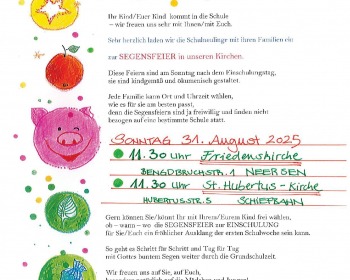 Ihr Kind/Euer Kind kommt in die Schule
– wir freuen uns sehr mit Ihnen/mit Euch.
Sehr herzlich laden wir die Schulanfänge mit ihren Familien ein
zur SEGENSFEIER in unseren Kirchen.
Diese Feiern sind am Sonntag nach dem Einschulungstag,
sie sind kindgemäß und ökumenisch gestaltet.
Jede Familie kann Ort und Uhrzeit wählen,
wie es für sie am besten passt,
denn die Segensfeiern sind ja freiwillig und finden nicht
bezogen auf eine bestimmte Schule statt.
SONNTAG 31. August 2025
11.30 Uhr Friedenskirche
BENGDBRUCHSTR. 1 NEERSEN
11.30 Uhr St. Hubertus-Kirche
HUBERTUSSTR. 5 SCHIEFBAHN
Gern können Sie/könnt Ihr mit Ihrem/Eurem Kind frei wählen,
ob – wann – wo die SEGENSFEIER zur EINSCHULUNG
für Sie/Euch ein fröhlicher Ausklang der ersten Schulwoche sein kann.
So geht es Schritt für Schritt und Tag für Tag
mit Gottes buntem Segen weiter durch die Grundschulzeit.
Wir freuen uns auf Sie, auf Euch,